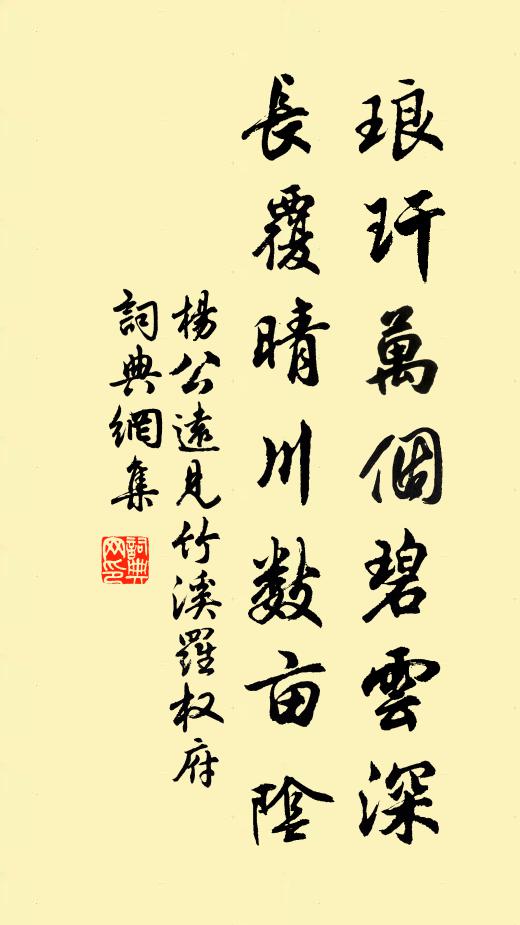 琅玕萬個碧雲深
長覆晴川数亩陰
楊公遠見竹溪羅权府
詞典網集
詞典
网印